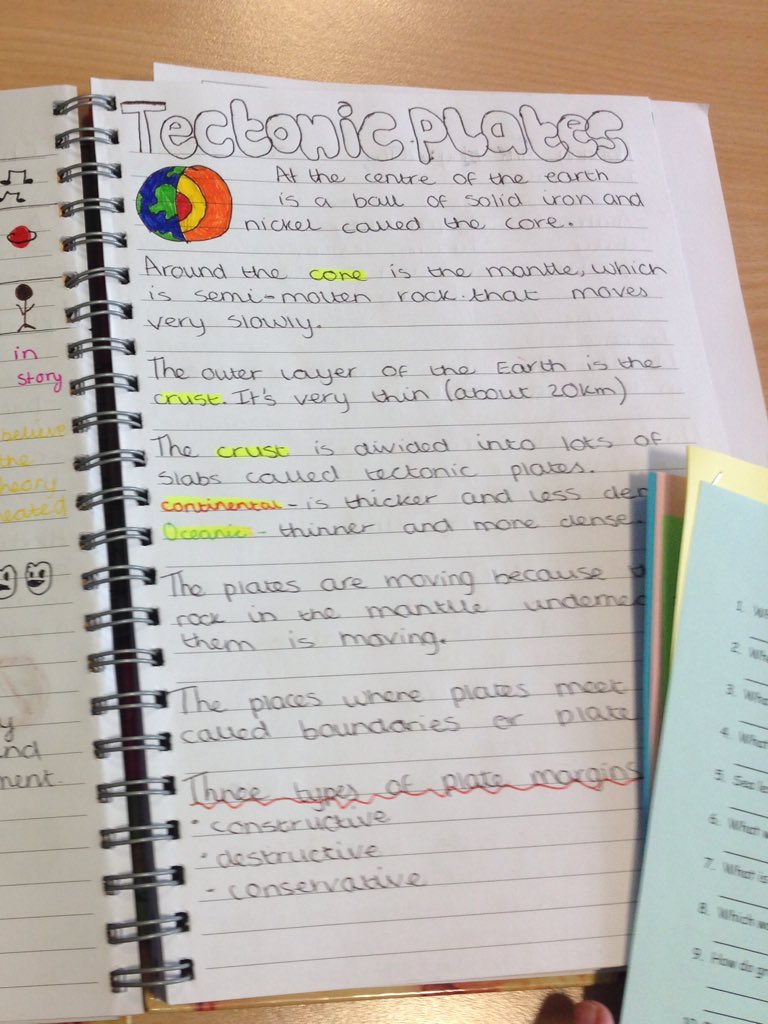 in
story
believe
the
theory
eated
y
nd
ment.
Tectonic Plates
At the centre of the earth
is a ball of solid iron and
nickel called the core.
Around the core is the mantle, which
is semi-molten rock that moves
very slowly.
The outer layer of the Earth is the
crust. It's very thin (about 20km)
The crust is divided into lots of
slabs called tectonic plates.
continental - is thicker and less den
Oceanic - thinner and more dense.
The plates are moving because
rock in the mantle undernea
them is moving.
The places where plates meet
called boundaries or plate
Three types of plate margins
• constructive
• destructive
- conservative
1. Wh
2. Wha
3. Wha
4. What
5. Sea le
6. What w
7. What is
8. Which wa
9. How do gr
10.